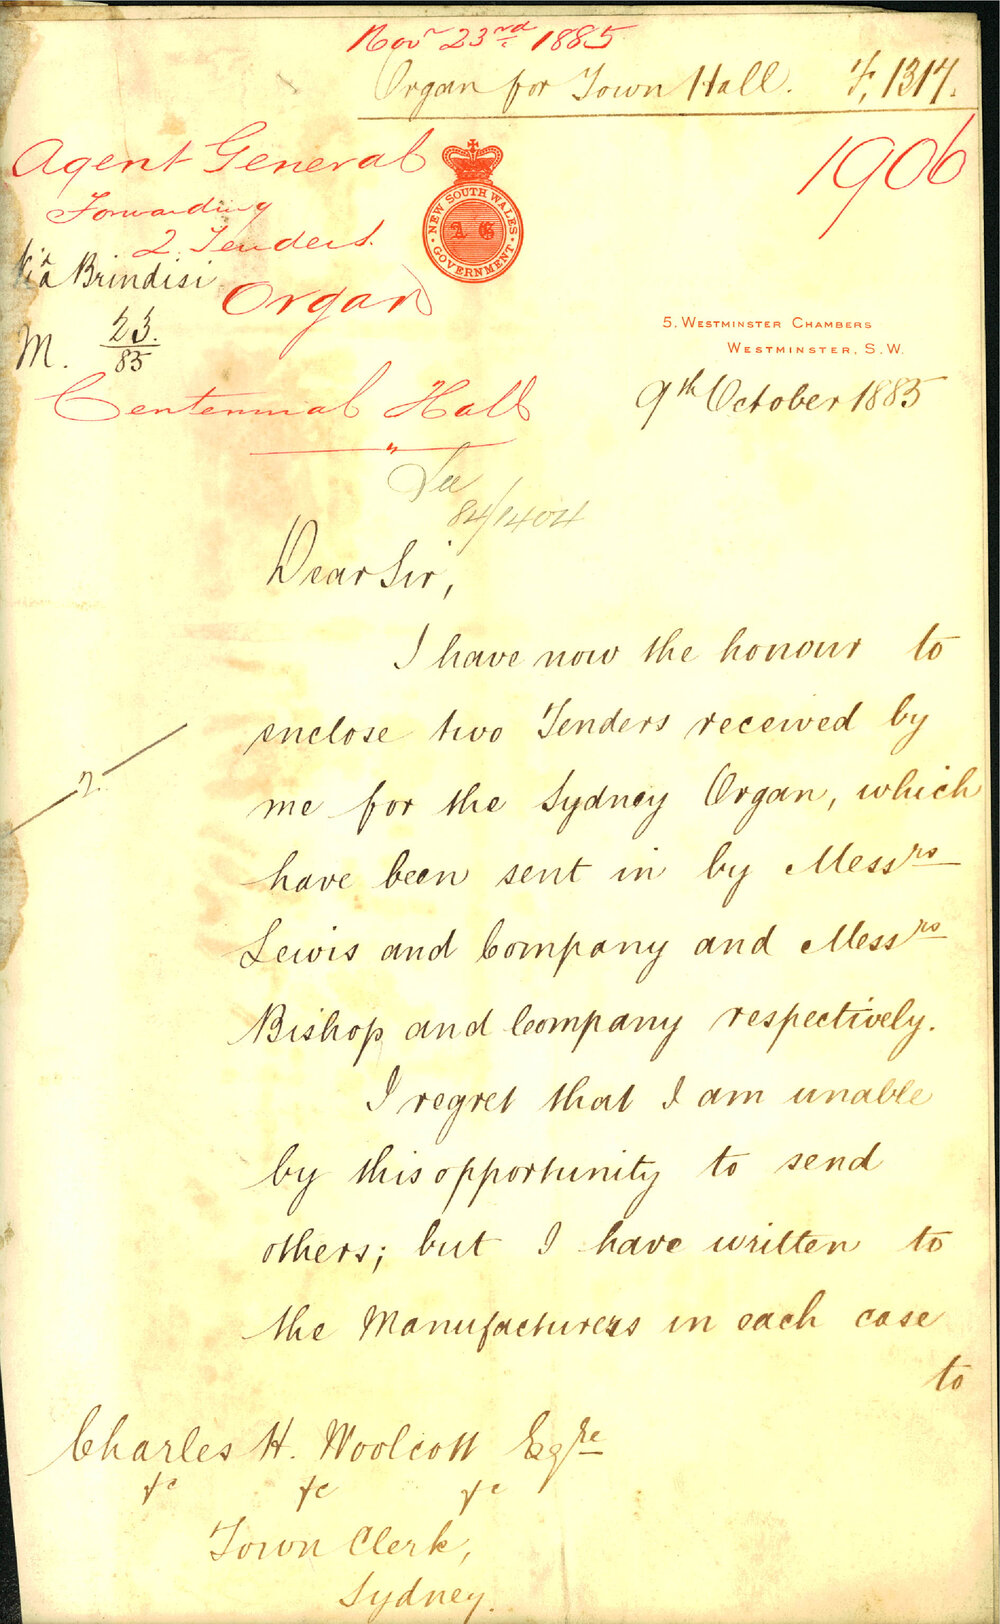 Novr 23rd 1885
Organ for Town Hall. F, 1317.
1906
Agent General
Forwarding
2 Tenders
Via Brindisi
Organ
M. 23./85
Centennial Hall
"
NEW SOUTH WALES
A G
GOVERNMENT
5. WESTMINSTER CHAMBERS
WESTMINSTER. S.W.
9th October 1885
84/1404
Dear Sir,
I have now the honour to
enclose two Tenders received by
me for the Sydney Organ, which
have been sent in by Messrs
Lewis and Company and Messrs
Bishop and Company respectively.
2.
I regret that I am unable
by this opportunity to send
others; but I have written to
the Manufacturers in each case
to
Charles H. Woolcott Esqre
&c &c &c
Town Clerk,
Sydney.